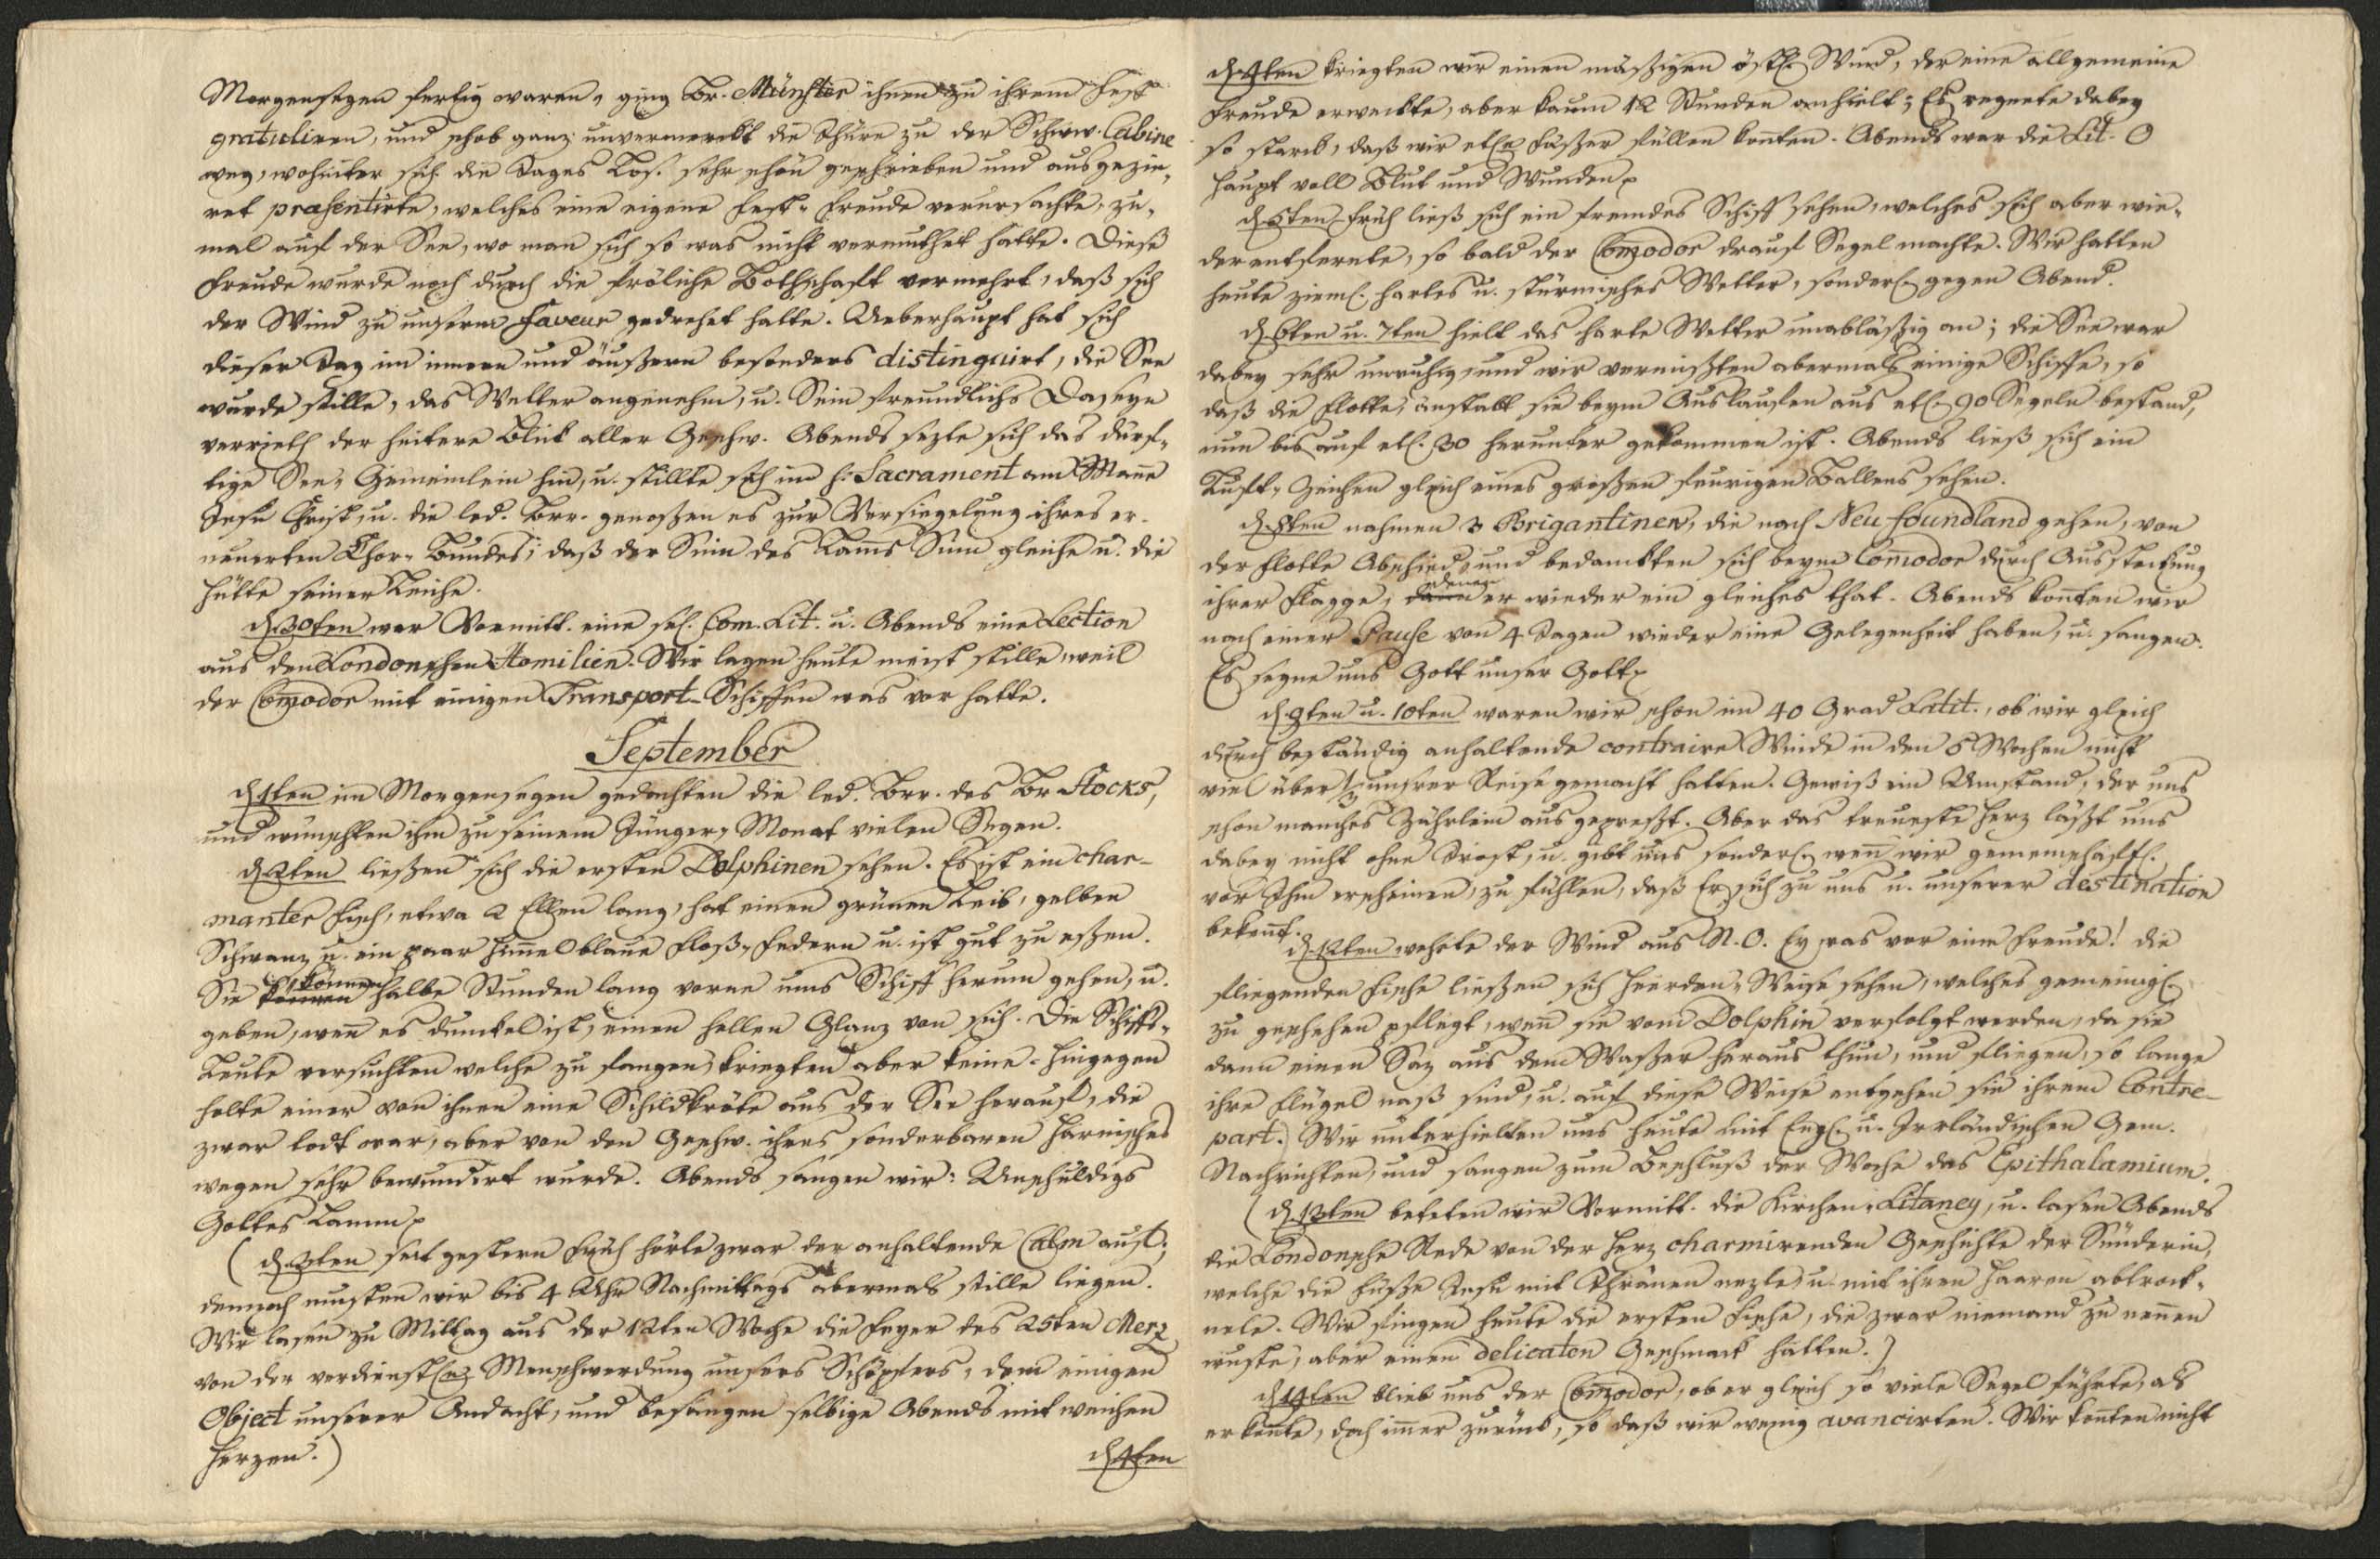 Morgensegen fertig waren, ging Br. Münster ihnen zu ihrem Fest
gratuliren, und schob ganz unvermerckt die Thüre zu der Schww. Cabine
weg, wohinter sich die Tages Los. sehr schön geschrieben und ausgezie-
ret præsentirte, welches eine eigene Fest-Freude verursachte, zu-
mal auf der See, wo man sich so was nicht vermuthet hätte. Diese
Freude wurde noch durch die fröliche Bothschaft vermehrt, daß sich
der Wind zu unserm Faveur gedrehet hatte. Ueberhaupt hat sich
dieser Tag im innern und äußern besonders distinguirt, die See
wurde stille, das Wetter angenehm, u. Sein freundlichs Daseyn
verrieth der heitere Blick aller Geschw. Abends sezte sich das dürf-
tige See-Gemeinlein hin, u. stillte sich im h. Sacrament am Mañe
Jesu Christ, u. die led. Brr. genoßen es zur Versiegelung ihres er-
neuerten Chor-Bundes; daß der Sinn des Lam̄s Sinn gleiche u. die
Hütte seiner Leiche.
d. 30ten war Vormitt. eine sel. Com. Lit. u. Abends eine Lection
aus den Londonschen Homilien. Wir lagen heute meist stille, weil
der Com̄odor mit einigen Transport-Schiffen was vor hatte.
September
d. 1ten im Morgensegen gedachten die led. Brr. des Br. Stocks,
und wünschten ihm zu seinem Jünger-Monat vielen Segen.
d. 2ten ließen sich die ersten Dolphinen sehen. Es ist ein char-
manter Fisch, etwa 2 Ellen lang, hat einen grünen Leib, gelben
Schwanz u. ein paar him̄elblaue Floß-Federn u. ist gut zu eßen.
Sie können halbe Stunden lang vorne ums Schiff herum gehen, u.
geben, weñ es dunckel ist, einen hellen Glanz von sich. Die Schiffs-
Leute versuchten welche zu fangen, kriegten aber keine. Hingegen
holte einer von ihnen eine Schildkröte aus der See herauf, die
zwar todt war, aber von den Geschw. ihres sonderbaren Harnisches
wegen sehr bewundert wurde. Abends sangen wir: Unschuldigs
Gottes Lamm p
(d. 3ten seit gestern Früh hörte zwar der anhaltende Calm auf;
dennoch musten wir bis 4 Uhr Nachmittags abermals stille liegen.
Wir lasen zu Mittag aus der 12ten Woche die Feyer des 25ten Merz
von der verdienstlen Menschwerdung unsers Schöpfers, dem einigen
Object unserer Andacht, und besangen selbige Abends mit weichen
Herzen.)
d. 4ten
d. 4ten kriegten wir einen mäßigen östl. Wind, der eine allgemeine
Freude erweckte, aber kaum 12 Stunden anhielt; Es regnete dabey
so starck, daß wir etle Fäßer füllen konten. Abends war die Lit. O
Haupt voll Blut und Wunden p
d. 5ten früh ließ sich ein fremdes Schiff sehen, welches sich aber wie-
der entfernte, so bald der Com̄odor drauf Segel machte. Wir hatten
heute zieml. hartes u. stürmisches Wetter, sonderl. gegen Abend.
d. 6ten u. 7ten hielt das harte Wetter unabläßig an; die See war
dabey sehr unruhig, und wir vermißten abermals einige Schiffe, so
daß die Flotte, anstatt sie beym Auslaufen aus etl. 90 Segeln bestand,
nun bis auf etl. 30 herunter gekommen ist. Abends ließ sich ein
Luft-Zeichen gleich eines großen feurigen Ballens sehen.
d. 8ten nahmen 3 Brigantinen, die nach Neu foundland gehen, von
der Flotte Abschied, und bedanckten sich beym Com̄odor durch Aussteckung
ihrer Flagge, denen er wieder ein gleiches that. Abends konten wir
nach einer Pause von 4 Tagen wieder eine Gelegenheit haben, u. sangen:
Es segne uns Gott unser Gott p
d. 9ten u. 10ten waren wir schon im 40 Grad Latit., ob wir gleich
durch beständig anhaltende contraire Winde in den 6 Wochen nicht
viel über 1/3 unsrer Reise gemacht hatten. Gewiß ein Umstand, der uns
schon manches Zährlein ausgepreßt. Aber das treueste Herz läßt uns
dabey nicht ohne Trost, u. gibt uns sonderl. weñ wir gemeinschaftl.
vor Ihm erscheinen, zu fühlen, daß Er sich zu uns u. unserer destination
bekennt.
d. 12ten wehete der Wind aus N.O. Ey was vor eine Freude! die
fliegenden Fische ließen sich Heerden-Weise sehen, welches gemeinigl.
zu geschehen pflegt, weñ sie vom Dolphin verfolgt werden, da sie
dann einen Saz aus dem Waßer heraus thun, und fliegen, so lange
ihre Flügel naß sind, u. auf diese Weise entgehen sie ihrem Contre-
part. Wir unterhielten uns heute mit Engl. u. Irrländischen Gem.
Nachrichten, und sangen zum Beschluß der Woche das Epithalamium.
(d. 13ten beteten wir Vormitt. die Kirchen-Litaney, u. lasen Abends
die Londonsche Rede von der Herz charmirenden Geschichte der Sünderin,
welche die Füße Jesu mit Thränen nezte, u. mit ihren Haaren abtrock-
nete. Wir fingen heute die ersten Fische, die zwar niemand zu neñen
wuste, aber einen delicaten Geschmack hatten.)
d. 14ten blieb uns der Com̄odor, ob er gleich so viele Segel führte, als
er konte, doch im̄er zurück, so daß wir wenig avancirten. Wir konten nicht